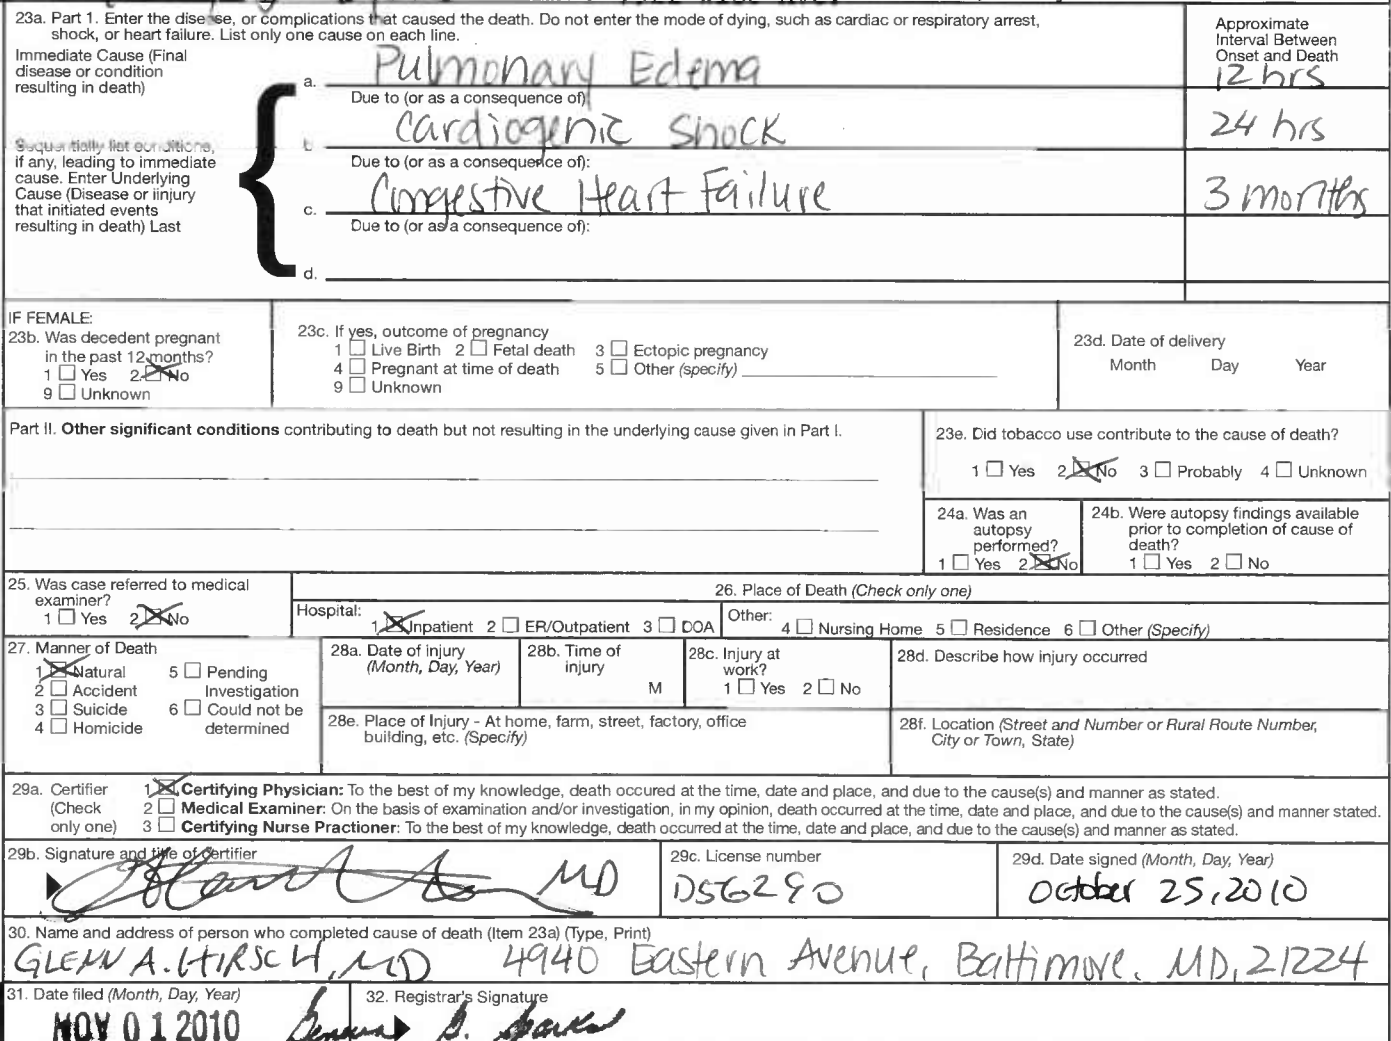 23a. Part 1. Enter the disease, or complications that caused the death. Do not enter the mode of dying, such as cardiac or respiratory arrest,
shock, or heart failure. List only one cause on each line.
Approximate
Interval Between
Onset and Death
Immediate Cause (Final
disease or condition
resulting in death)
a. Pulmonary Edema 12 hrs
Due to (or as a consequence of)
b Cardiogenic Shock 24 hrs
Sequentially list conditions,
if any, leading to immediate
cause. Enter Underlying
Cause (Disease or iinjury
that initiated events
resulting in death) Last
Due to (or as a consequence of):
c. Congestive Heart Failure 3 months
Due to (or as a consequence of):
d.
IF FEMALE:
23b. Was decedent pregnant
in the past 12 months?
1 Yes 2 No
9 Unknown
23c. If yes, outcome of pregnancy
1 Live Birth 2 Fetal death 3 Ectopic pregnancy
4 Pregnant at time of death 5 Other (specify)
9 Unknown
23d. Date of delivery
Month Day Year
Part II. Other significant conditions contributing to death but not resulting in the underlying cause given in Part I.
23e. Did tobacco use contribute to the cause of death?
1 Yes 2 No 3 Probably 4 Unknown
24a. Was an
autopsy
performed?
1 Yes 2 No
24b. Were autopsy findings available
prior to completion of cause of
death?
1 Yes 2 No
25. Was case referred to medical
examiner?
1 Yes 2 No
26. Place of Death (Check only one)
Hospital:
1 Inpatient 2 ER/Outpatient 3 DOA
Other:
4 Nursing Home 5 Residence 6 Other (Specify)
27. Manner of Death
1 Natural 5 Pending
2 Accident Investigation
3 Suicide 6 Could not be
4 Homicide determined
28a. Date of injury
(Month, Day, Year)
28b. Time of
injury
M
28c. Injury at
work?
1 Yes 2 No
28d. Describe how injury occurred
28e. Place of Injury - At home, farm, street, factory, office
building, etc. (Specify)
28f. Location (Street and Number or Rural Route Number,
City or Town, State)
29a. Certifier
(Check
only one)
1 Certifying Physician: To the best of my knowledge, death occured at the time, date and place, and due to the cause(s) and manner as stated.
2 Medical Examiner: On the basis of examination and/or investigation, in my opinion, death occurred at the time, date and place, and due to the cause(s) and manner stated.
3 Certifying Nurse Practioner: To the best of my knowledge, death occurred at the time, date and place, and due to the cause(s) and manner as stated.
29b. Signature and title of certifier
MD
29c. License number
D56290
29d. Date signed (Month, Day, Year)
October 25, 2010
30. Name and address of person who completed cause of death (Item 23a) (Type, Print)
GLENN A. HIRSCH, MD 4940 Eastern Avenue, Baltimore, MD, 21224
31. Date filed (Month, Day, Year)
NOV 01 2010
32. Registrar's Signature